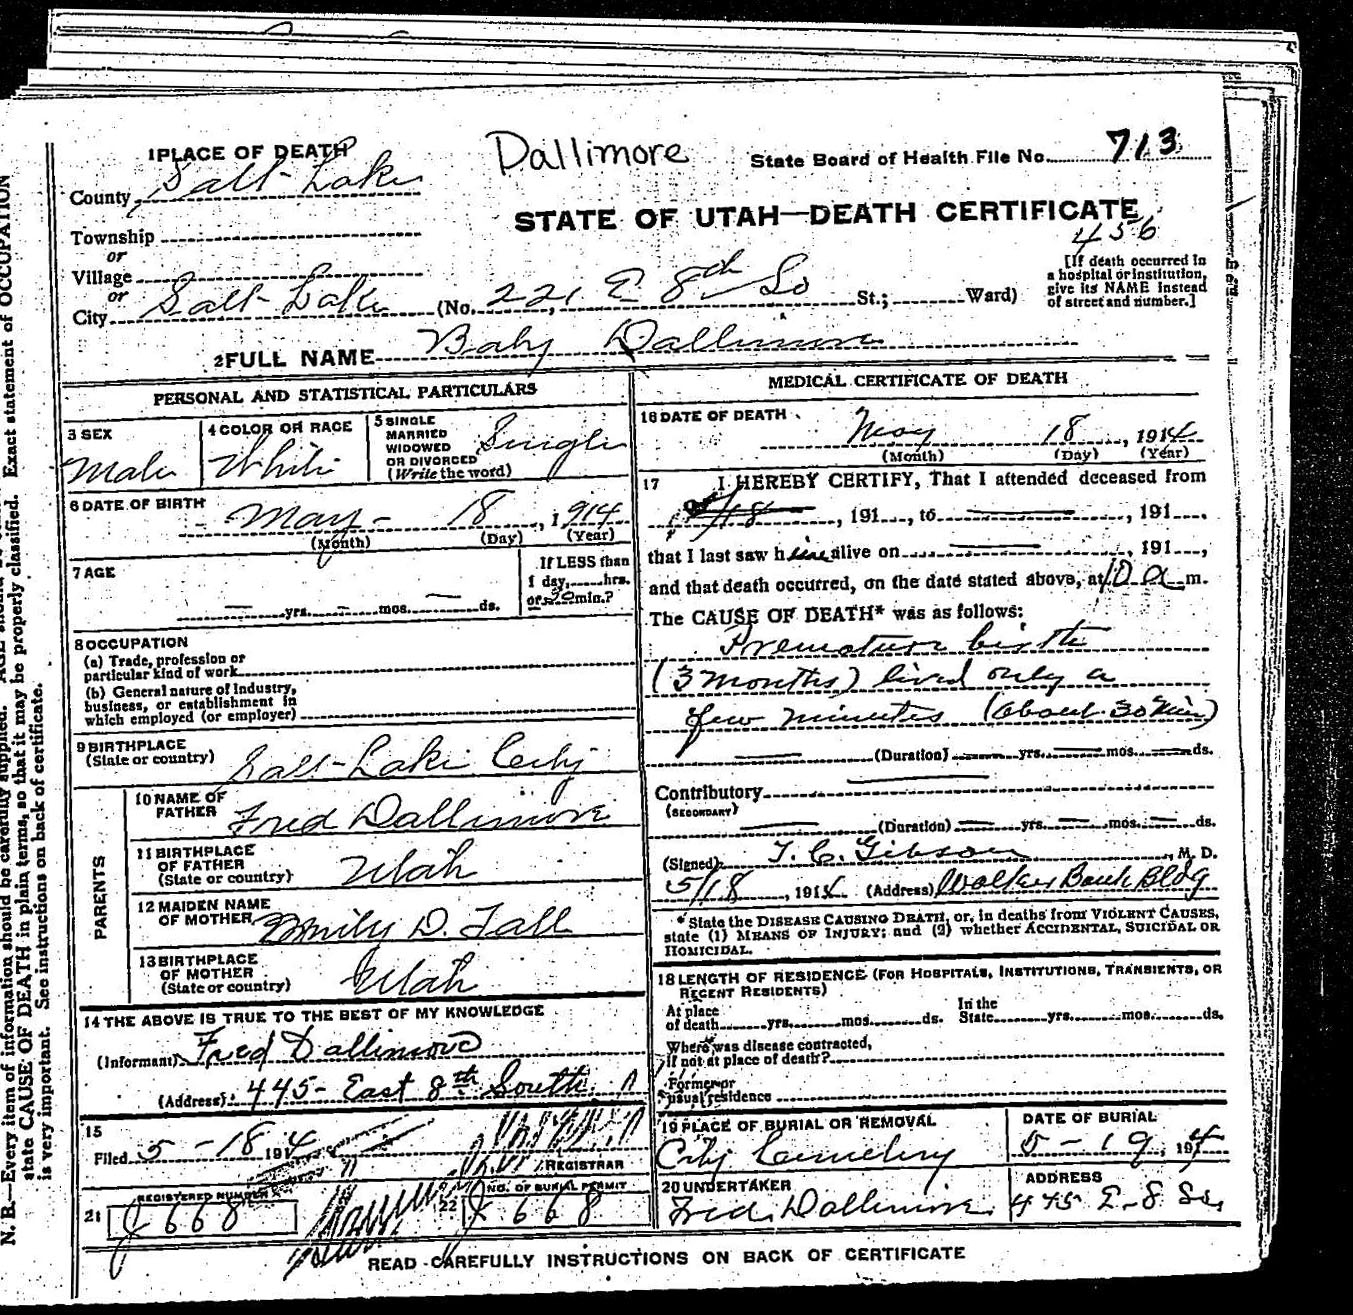 1 PLACE OF DEATH
Dallimore
State Board of Health File No. 713
County Salt Lake
STATE OF UTAH—DEATH CERTIFICATE
456
Township
or
Village
or
City Salt Lake (No. 221 E 8th So St.; Ward)
[If death occurred in
a hospital or institution,
give its NAME instead
of street and number.]
2 FULL NAME Baby Dallimore
PERSONAL AND STATISTICAL PARTICULARS
3 SEX
Male
4 COLOR OR RACE
White
5 SINGLE
MARRIED
WIDOWED
OR DIVORCED
(Write the word)
Single
6 DATE OF BIRTH
May - 18, 1914
(Month) (Day) (Year)
7 AGE
— yrs. — mos. — ds.
If LESS than
1 day, hrs.
or 30 min.?
8 OCCUPATION
(a) Trade, profession or
particular kind of work
(b) General nature of industry,
business, or establishment in
which employed (or employer)
9 BIRTHPLACE
(State or country) Salt Lake City
PARENTS
10 NAME OF
FATHER Fred Dallimore
11 BIRTHPLACE
OF FATHER
(State or country) Utah
12 MAIDEN NAME
OF MOTHER Emily D. Tall
13 BIRTHPLACE
OF MOTHER
(State or country) Utah
14 THE ABOVE IS TRUE TO THE BEST OF MY KNOWLEDGE
(Informant) Fred Dallimore
(Address) 445 - East 8th South
15
Filed 5 - 18 1914
REGISTRAR
REGISTERED NUMBER
21 J 668
NO. OF BURIAL PERMIT
22 J 668
MEDICAL CERTIFICATE OF DEATH
16 DATE OF DEATH
May 18, 1914
(Month) (Day) (Year)
17 I HEREBY CERTIFY, That I attended deceased from
, 191 , to , 191 .
that I last saw h alive on , 191 ,
and that death occurred, on the date stated above, at 10 a m.
The CAUSE OF DEATH* was as follows:
Premature birth
(3 months) lived only a
few minutes (about 30 min)
(Duration) yrs. mos. ds.
Contributory
(SECONDARY)
(Duration) yrs. mos. ds.
(Signed) T. C. Gibson, M. D.
5/18, 1914 (Address) Walker Bank Bldg
* State the DISEASE CAUSING DEATH, or, in deaths from VIOLENT CAUSES,
state (1) MEANS OF INJURY; and (2) whether ACCIDENTAL, SUICIDAL OR
HOMICIDAL.
18 LENGTH OF RESIDENCE (FOR HOSPITALS, INSTITUTIONS, TRANSIENTS, OR
RECENT RESIDENTS)
At place
of death yrs. mos. ds.
In the
State yrs. mos. ds.
Where was disease contracted,
if not at place of death?
Former or
usual residence
19 PLACE OF BURIAL OR REMOVAL
City Cemetery
DATE OF BURIAL
5 - 19, 1914
20 UNDERTAKER
Fred. Dallimore
ADDRESS
445 E-8 So.
READ CAREFULLY INSTRUCTIONS ON BACK OF CERTIFICATE
N. B.—Every item of information should be carefully supplied.
Exact statement of OCCUPATION
state CAUSE OF DEATH in plain terms, so that it may be properly classified.
is very important. See instructions on back of certificate.